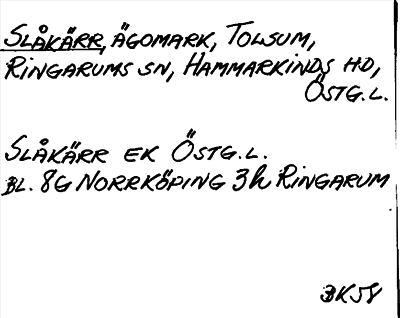 SLÅKÄRR, ÄGOMARK, TOLSUM,
RINGARUMS SN, HAMMARKINDS HD,
ÖSTG.L.
SLÅKÄRR EK ÖSTG.L.
BL. 8G NORRKÖPING 3h RINGARUM
BK58